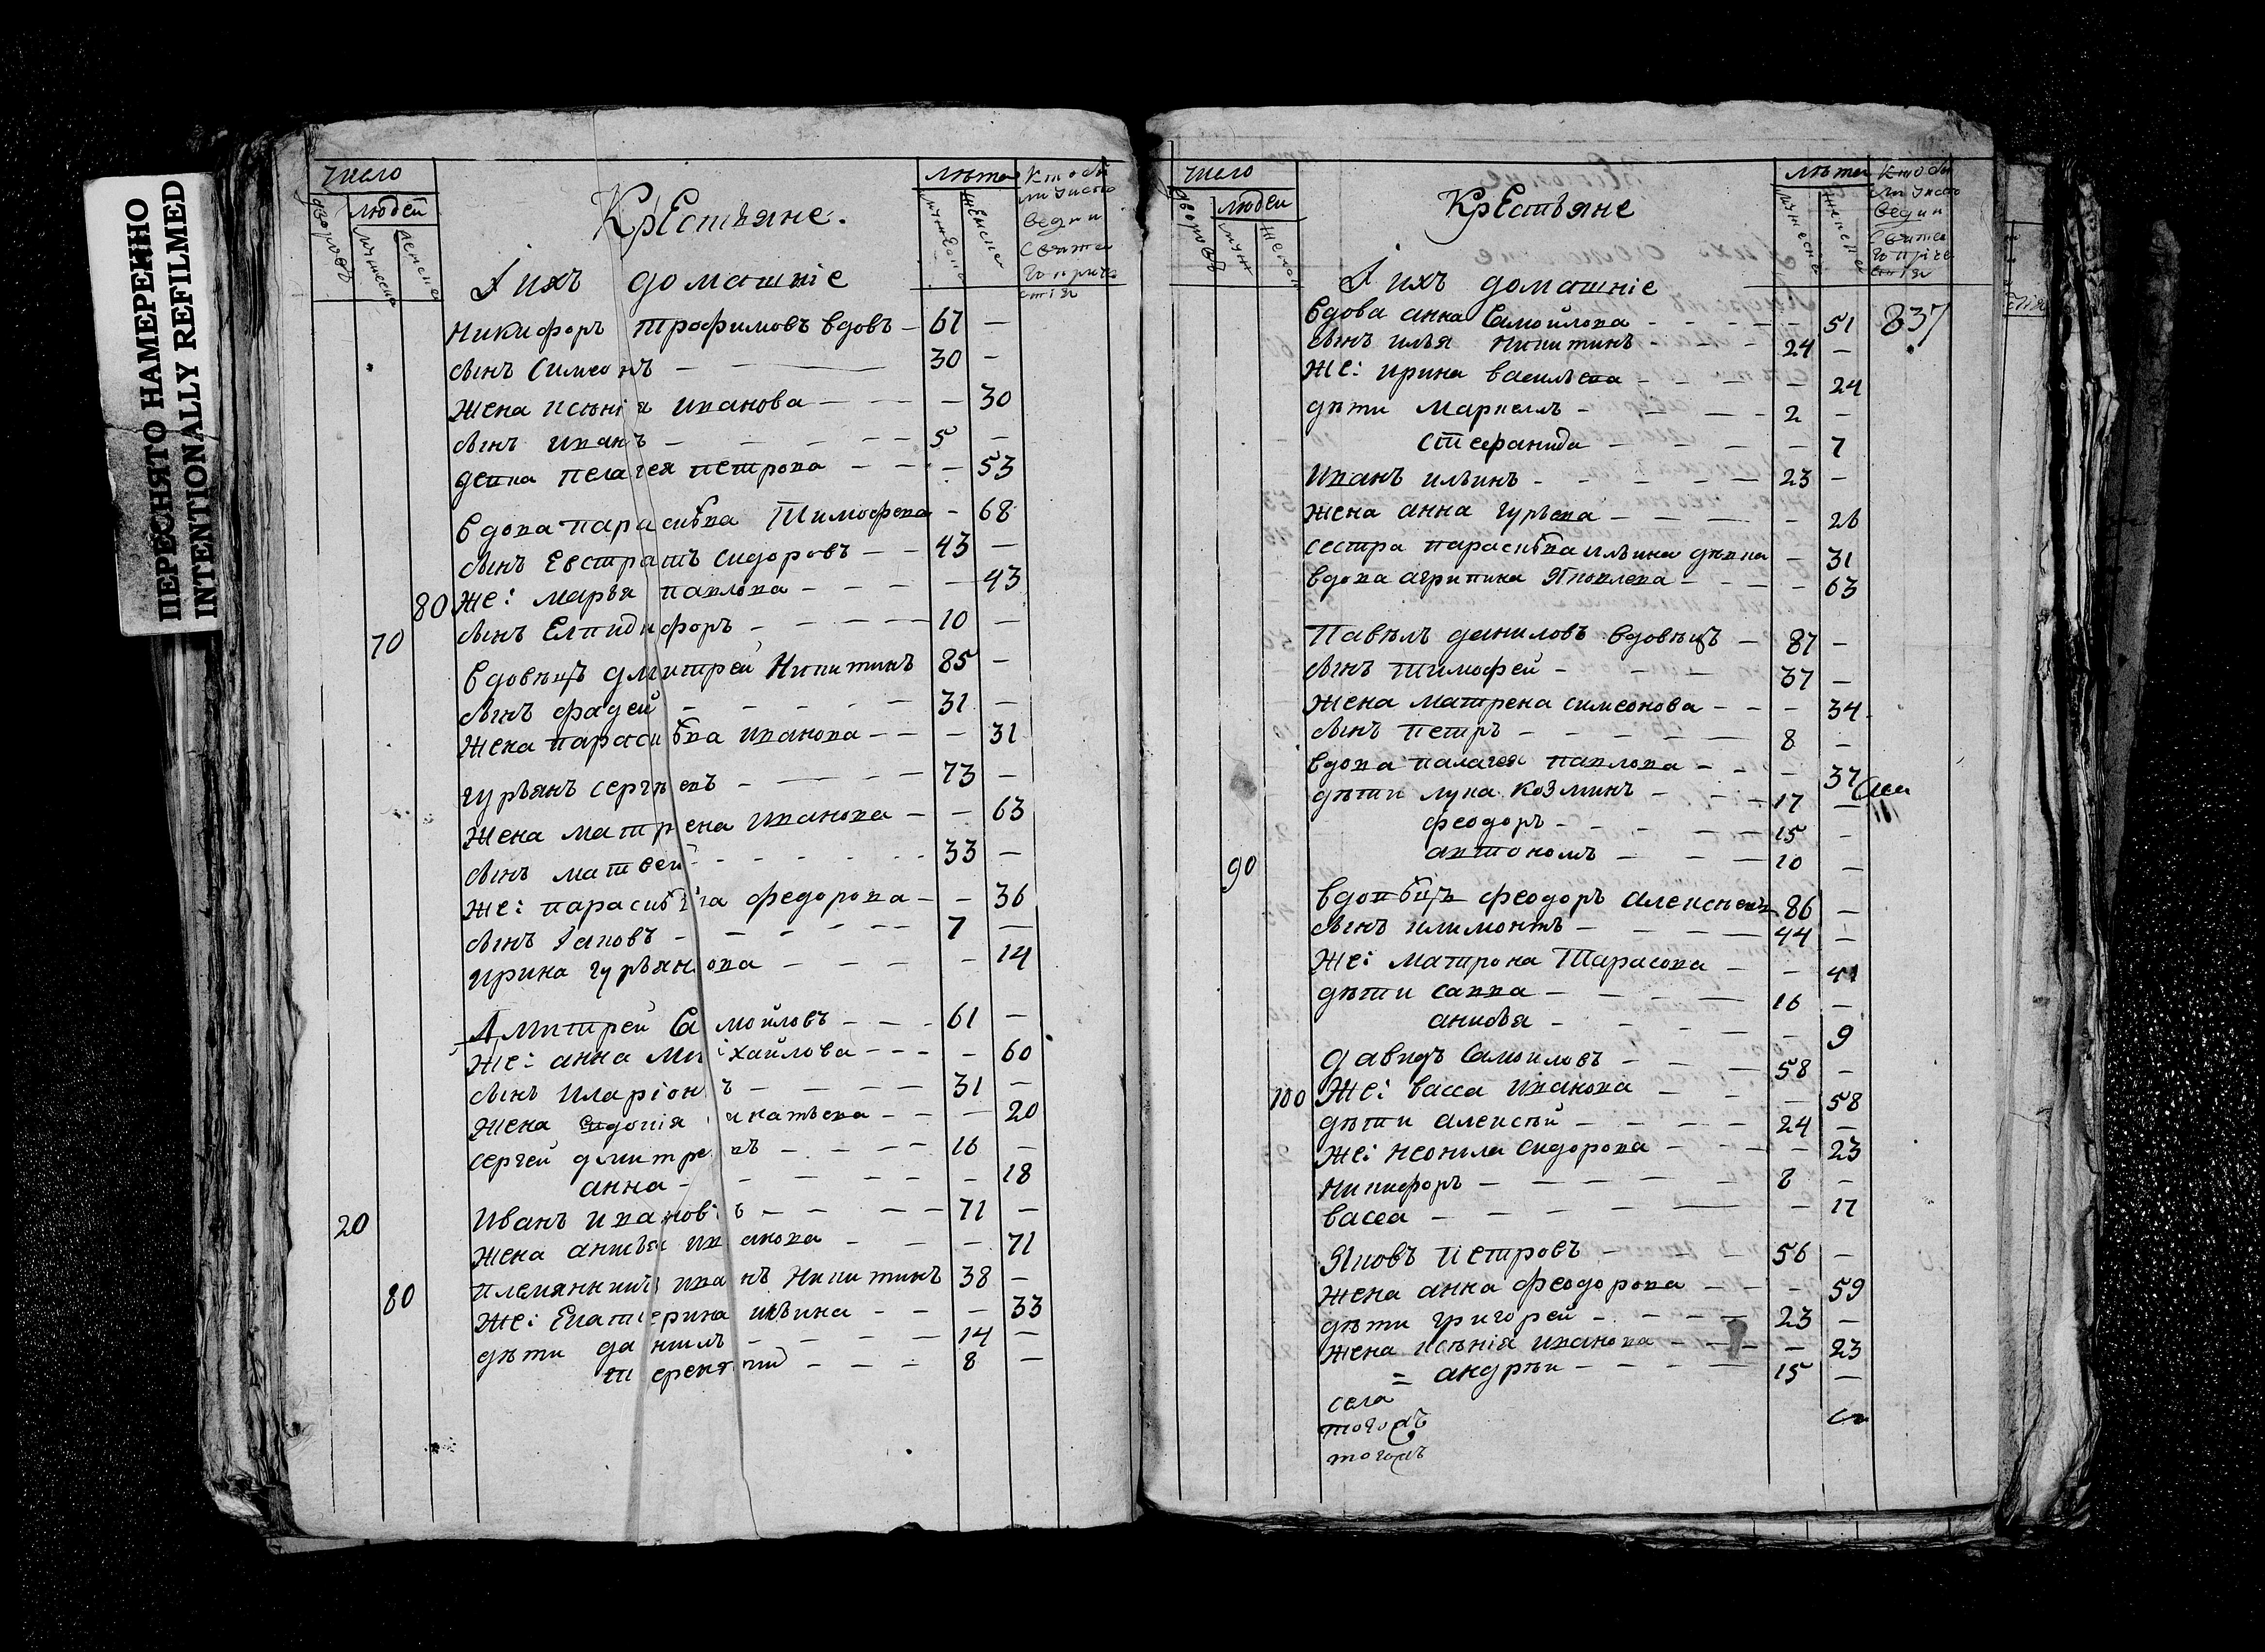 ПЕРЕСНЯТО НАМЕРЕННО
INTENTIONALLY REFILMED
число
людей
дворовъ
мужеска
женска
Крестьяне.
І ихъ домашніе
лѣта
мужеска
женска
Кто бы
ли у испо
веди и
Святаго
причастія
Никифоръ Трофимовъ вдовъ — 67 —
сынъ Симеонъ — 30 —
Жена Ксѣнія Иванова — — 30
сынъ Иванъ — 5 —
девка Пелагея Петрова — — 53
Вдова Парасковья Тимофева — 68
сынъ Евстратъ Сидоровъ — 43 —
80 Же: Марья Павлова — — 43
70 сынъ Елпидифоръ — 10 —
Вдовецъ Дмитрей Никитинъ 85 —
сынъ Фадей — 31 —
Жена Парасковья Иванова — — 31
Гурьянъ Сергѣевъ — 73 —
Жена Матрена Иванова — — 63
сынъ Матвей — 33 —
Же: Парасковья Федорова — — 36
сынъ Іаковъ — 7 —
Ирина Гурьянова — — 14
Дмитрей Самойловъ — 61 —
Же: Анна Михайлова — — 60
сынъ Иларіонъ — 31 —
Жена Евдокія Игнатьева — — 20
Сергей Дмитревъ — 16 —
анна — — 18
20 Иванъ Ивановъ — 71 —
Жена Анисья Иванова — — 71
80 Племянникъ Иванъ Никитинъ 38 —
Же: Екатерина Ильина — — 33
дѣти Данилъ — 14 —
Терентий — 8 —
число
людей
дворовъ
муж
женск
Крестьяне
І ихъ домашніе
лѣта
мужеска
женска
Кто бы
ли у испо
веди и
Святаго
причастія
837
Вдова анна Самойлова — — 51
сынъ илья Никитинъ — 24 —
Же: ирина васильева — — 24
дѣти Маркелъ — 2 —
Стефанида — — 7
Иванъ ильинъ — 23 —
Жена анна Гурьева — — 26
сестра Парасковья Ильина дѣвка — 31
Вдова агрипина Яковлева — — 63
Павелъ даниловъ вдовецъ — 87 —
сынъ Тимофей — 37 —
Жена Матрена Симеонова — — 34
сынъ Петръ — 8 —
Вдова Палагея Павлова — — 37
дѣти Лука Козминъ — 17 —
феодоръ — 15 —
90 автономъ — 10 —
Вдовецъ Феодоръ Алексѣевъ 86 —
сынъ Илимонтъ — 44 —
Же: Матрона Тарасова — — 41
дѣти Савва — 16 —
анисья — — 9
Давидъ Самоиловъ — 58 —
100 Же: Васса Иванова — — 58
дѣти алексѣй — 24 —
Же: Неонила Сидорова — — 23
Никифоръ — 8 —
Васса — — 17
Яковъ Петровъ — 56 —
Жена анна Феодорова — — 59
дѣти Григорей — 23 —
Жена Ксѣнія Иванова — — 23
= андрѣи — 15 —
села
тогожъ
тогожъ